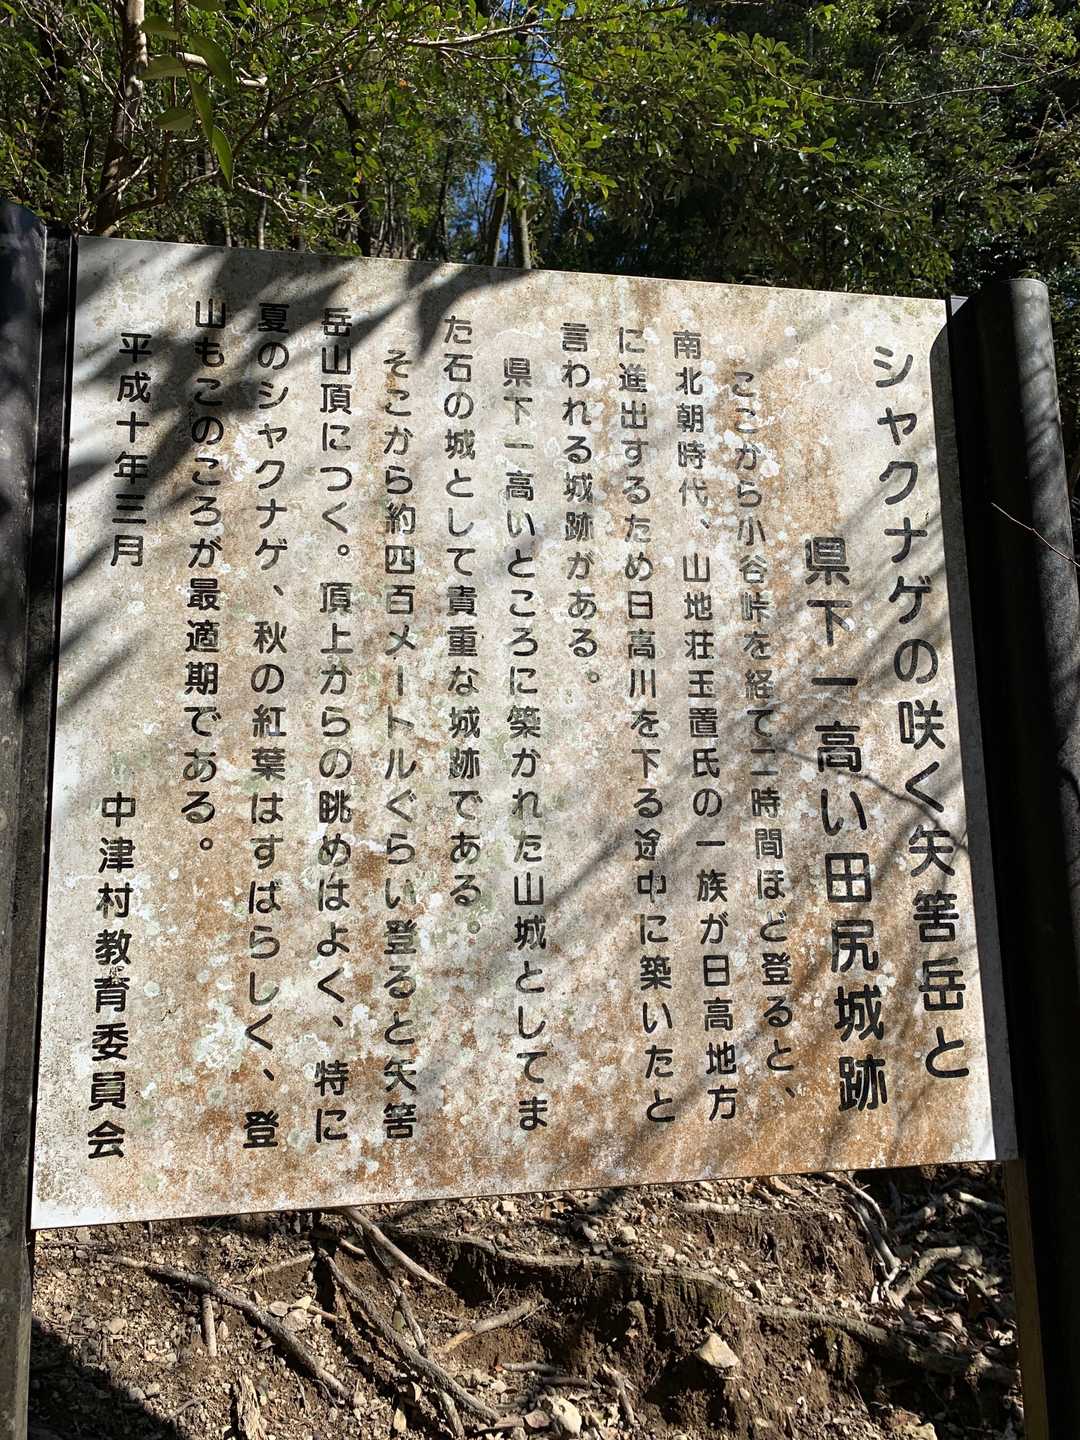 シャクナゲの咲く矢筈岳と
県下一高い田尻城跡
ここから小谷峠を経て二時間ほど登ると、
南北朝時代、山地荘玉置氏の一族が日高地方
に進出するため日高川を下る途中に築いたと
言われる城跡がある。
県下一高いところに築かれた山城としてま
た石の城として貴重な城跡である。
そこから約四百メートルぐらい登ると矢筈
岳山頂につく。頂上からの眺めはよく、特に
夏のシャクナゲ、秋の紅葉はすばらしく、登
山もこのころが最適期である。
平成十年三月
中津村教育委員会